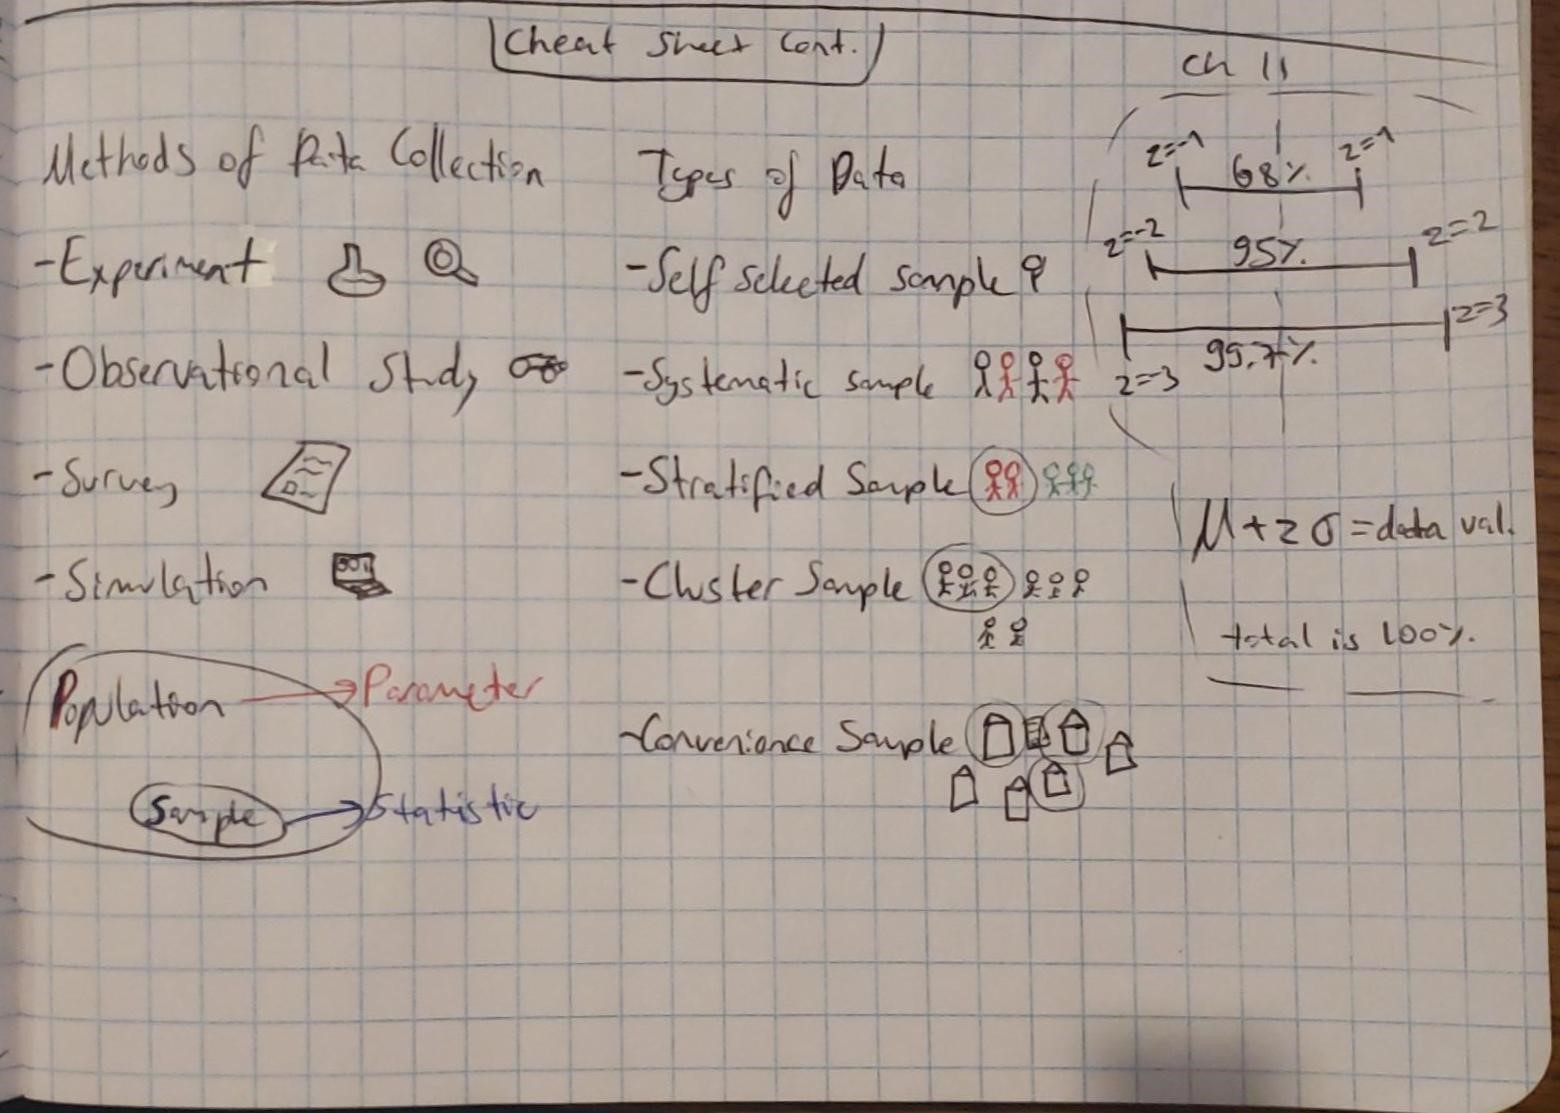 Cheat Sheet Cont.
Methods of Data Collection
-Experiment
-Observational Study
-Survey
-Simulation
Population → Parameter
Sample → Statistic
Types of Data
-Self selected sample
-Systematic sample
-Stratified Sample
-Cluster Sample
-Convenience Sample
Ch 11
z=-1 68% z=1
z=-2 95% z=2
z=-3 99.7% z=3
μ+zσ=data val.
total is 100%.